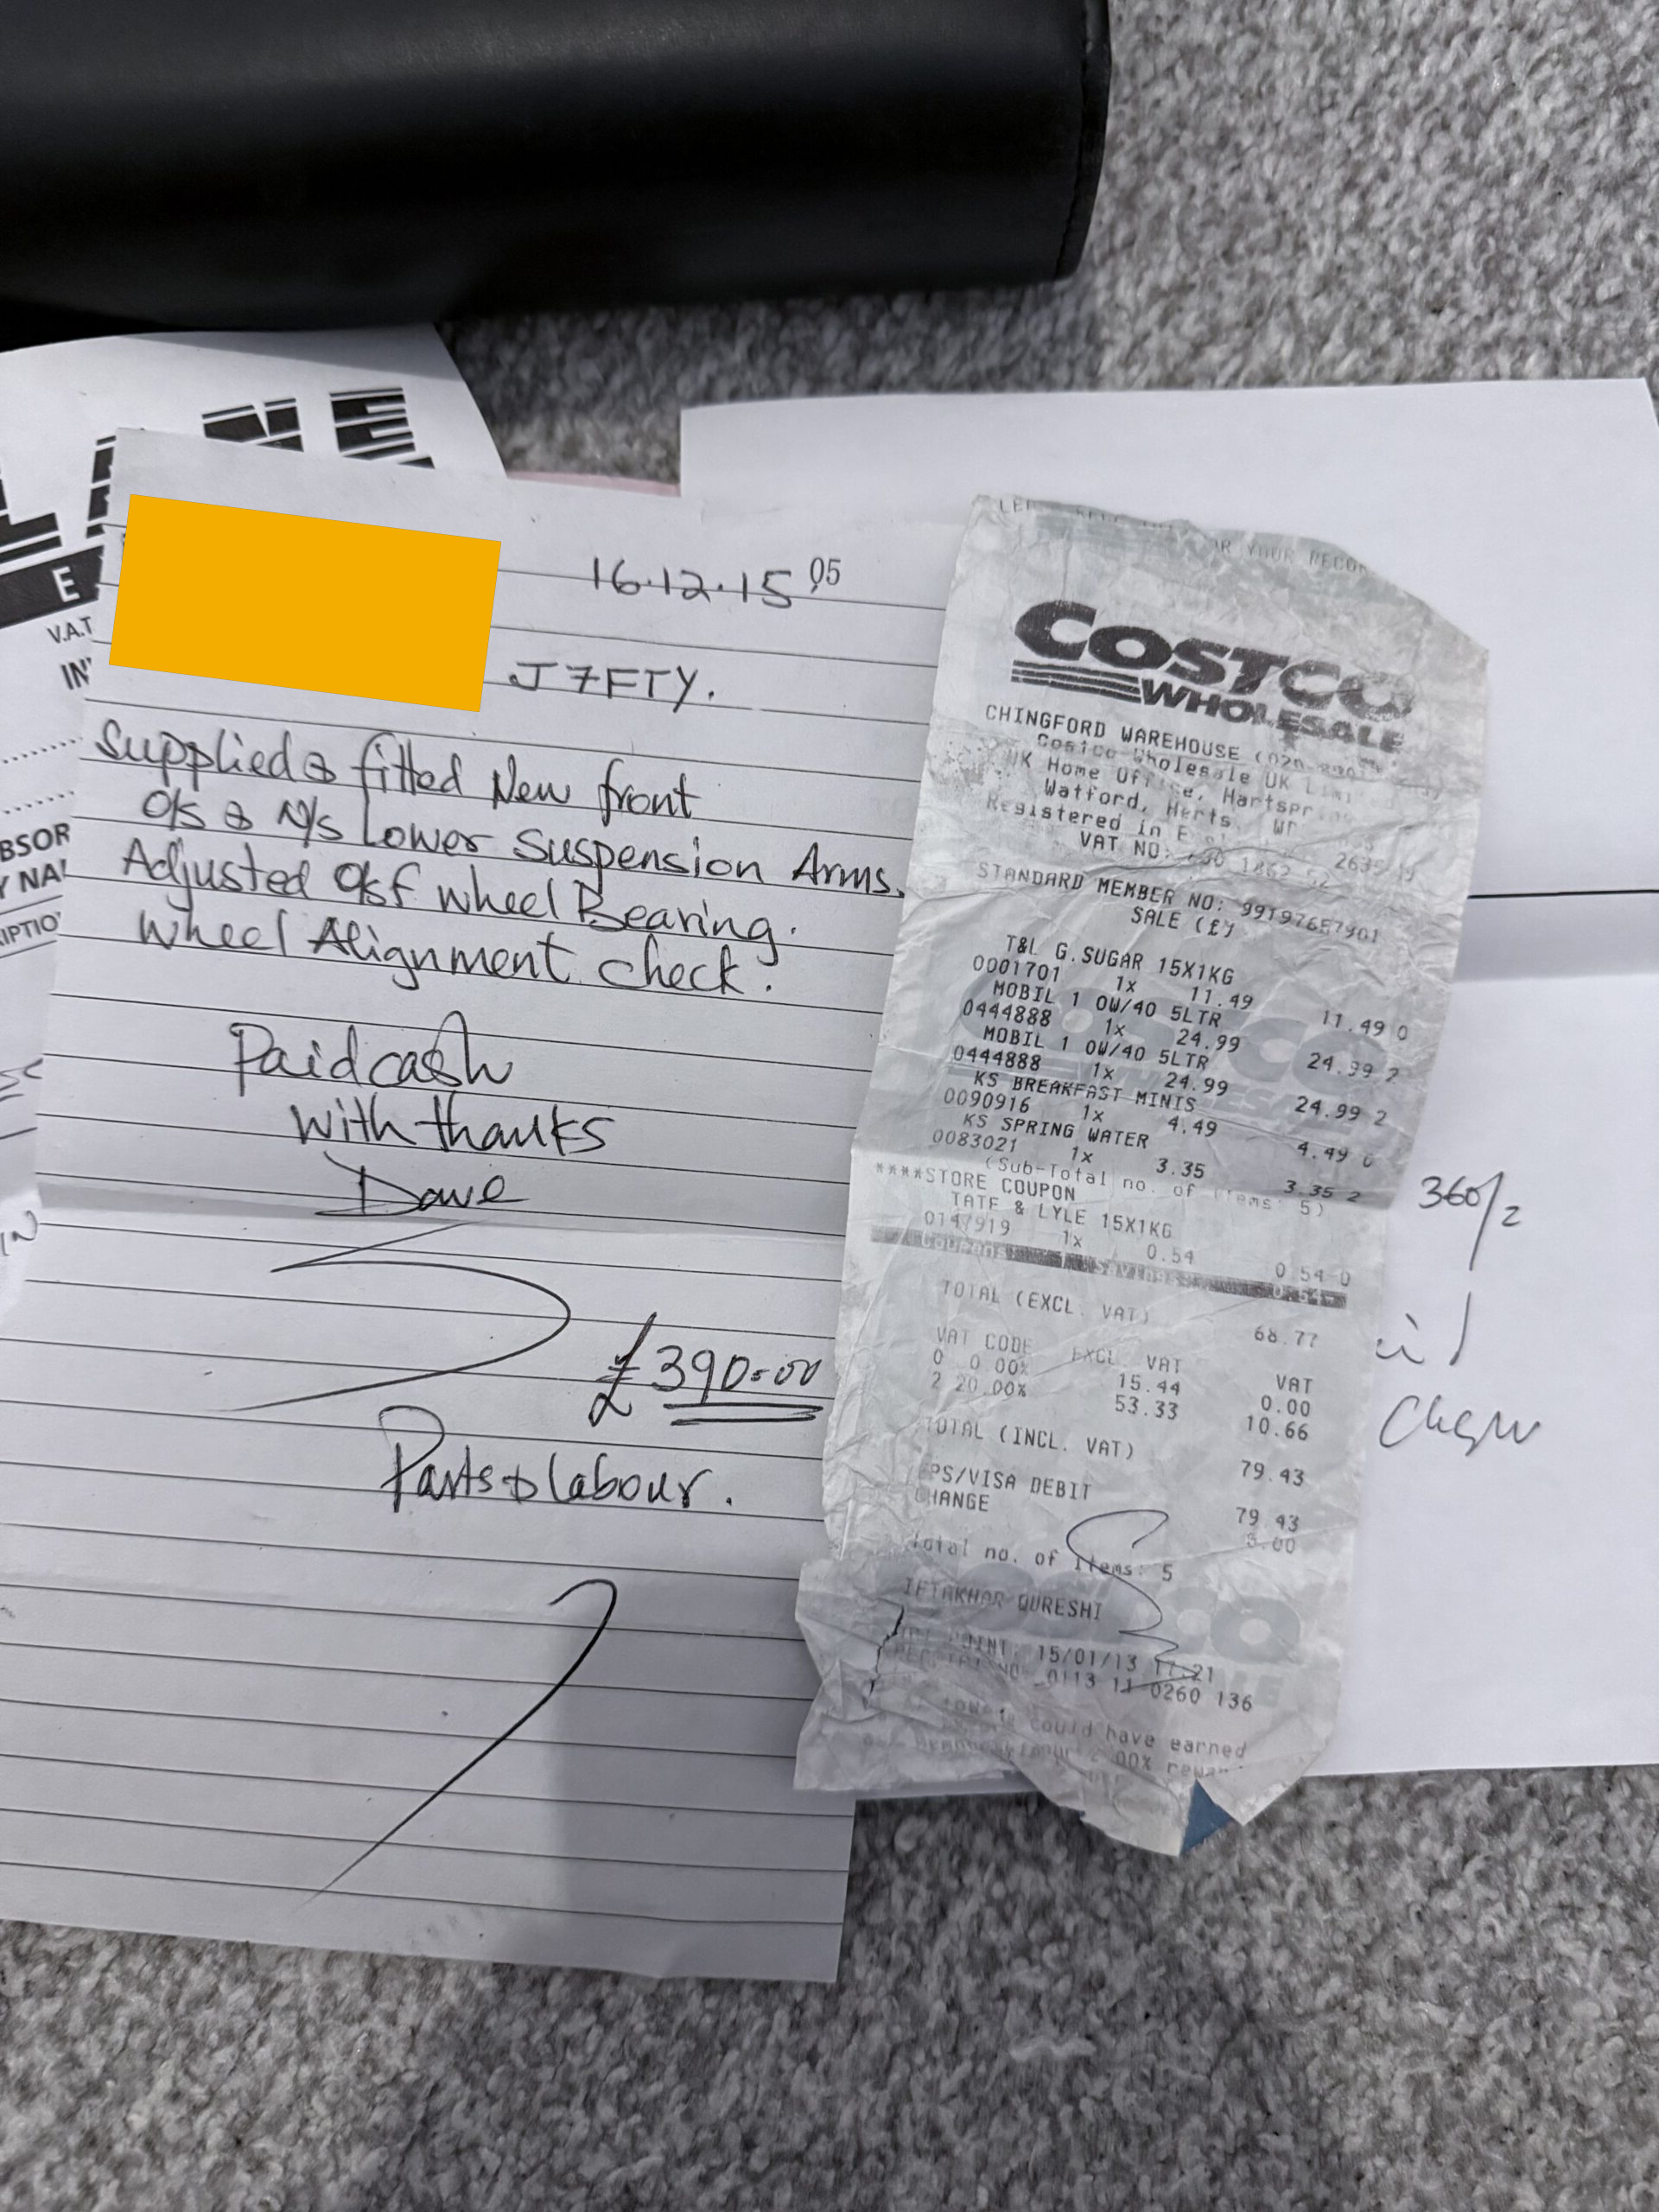 LANE
E
V.A.T
BSOR
Y NA
IPTIO
16.12.15 05
J7FTY.
Supplied & fitted New front
O/S & N/S Lower Suspension Arms.
Adjusted O/S F Wheel Bearing.
Wheel Alignment check.
Paid cash
with thanks
Dave
£390=00
Parts & labour.
OR YOUR RECOR
COSTCO
WHOLESALE
CHINGFORD WAREHOUSE (020
Costco Wholesale UK Limi
UK Home Office, Hartspr
Watford, Herts. WD
Registered in E
VAT NO: 1862 52
STANDARD MEMBER NO:
SALE (£)
T&L G.SUGAR 15X1KG
0001701 1x 11.49 11.49 0
MOBIL 1 0W/40 5LTR
0444888 1x 24.99 24.99 2
MOBIL 1 0W/40 5LTR
0444888 1x 24.99 24.99 2
KS BREAKFAST MINIS
0090916 1x 4.49 4.49 0
KS SPRING WATER
0083021 1x 3.35 3.35 2
(Sub-Total no. of Items: 5)
****STORE COUPON
TATE & LYLE 15X1KG
0147919 1x 0.54 0.54-0
Coupons Savings 0.54-
TOTAL (EXCL. VAT) 68.77
VAT CODE EXCL. VAT VAT
0 0.00% 15.44 0.00
2 20.00% 53.33 10.66
TOTAL (INCL. VAT) 79.43
EPS/VISA DEBIT 79.43
CHANGE 0.00
Total no. of Items: 5
IFTAKHAR QURESHI
POINT: 15/01/13 17:21
RECEIPT NO. 0113 11 0260 136
could have earned
2.00% rewar
360/2